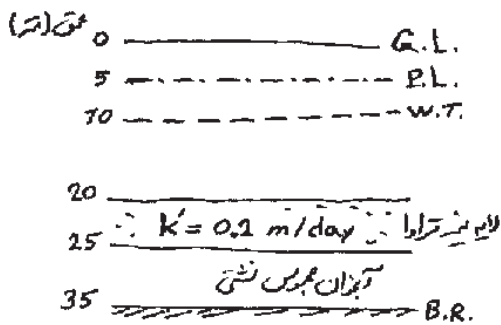 عمق (متر)
0 G.L.
5 P.L.
10 W.T.
20
k' = 0.1 m/day لایه نیمه تراوا
25
آبخوان محبوس نشتی
35 B.R.